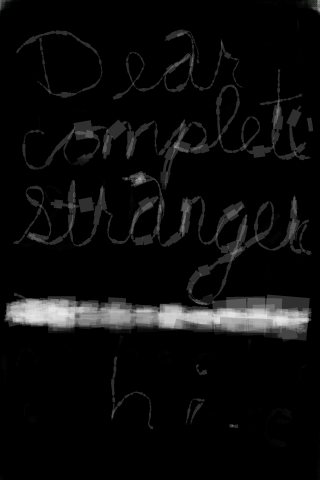 Dear
complete
stranger
hi